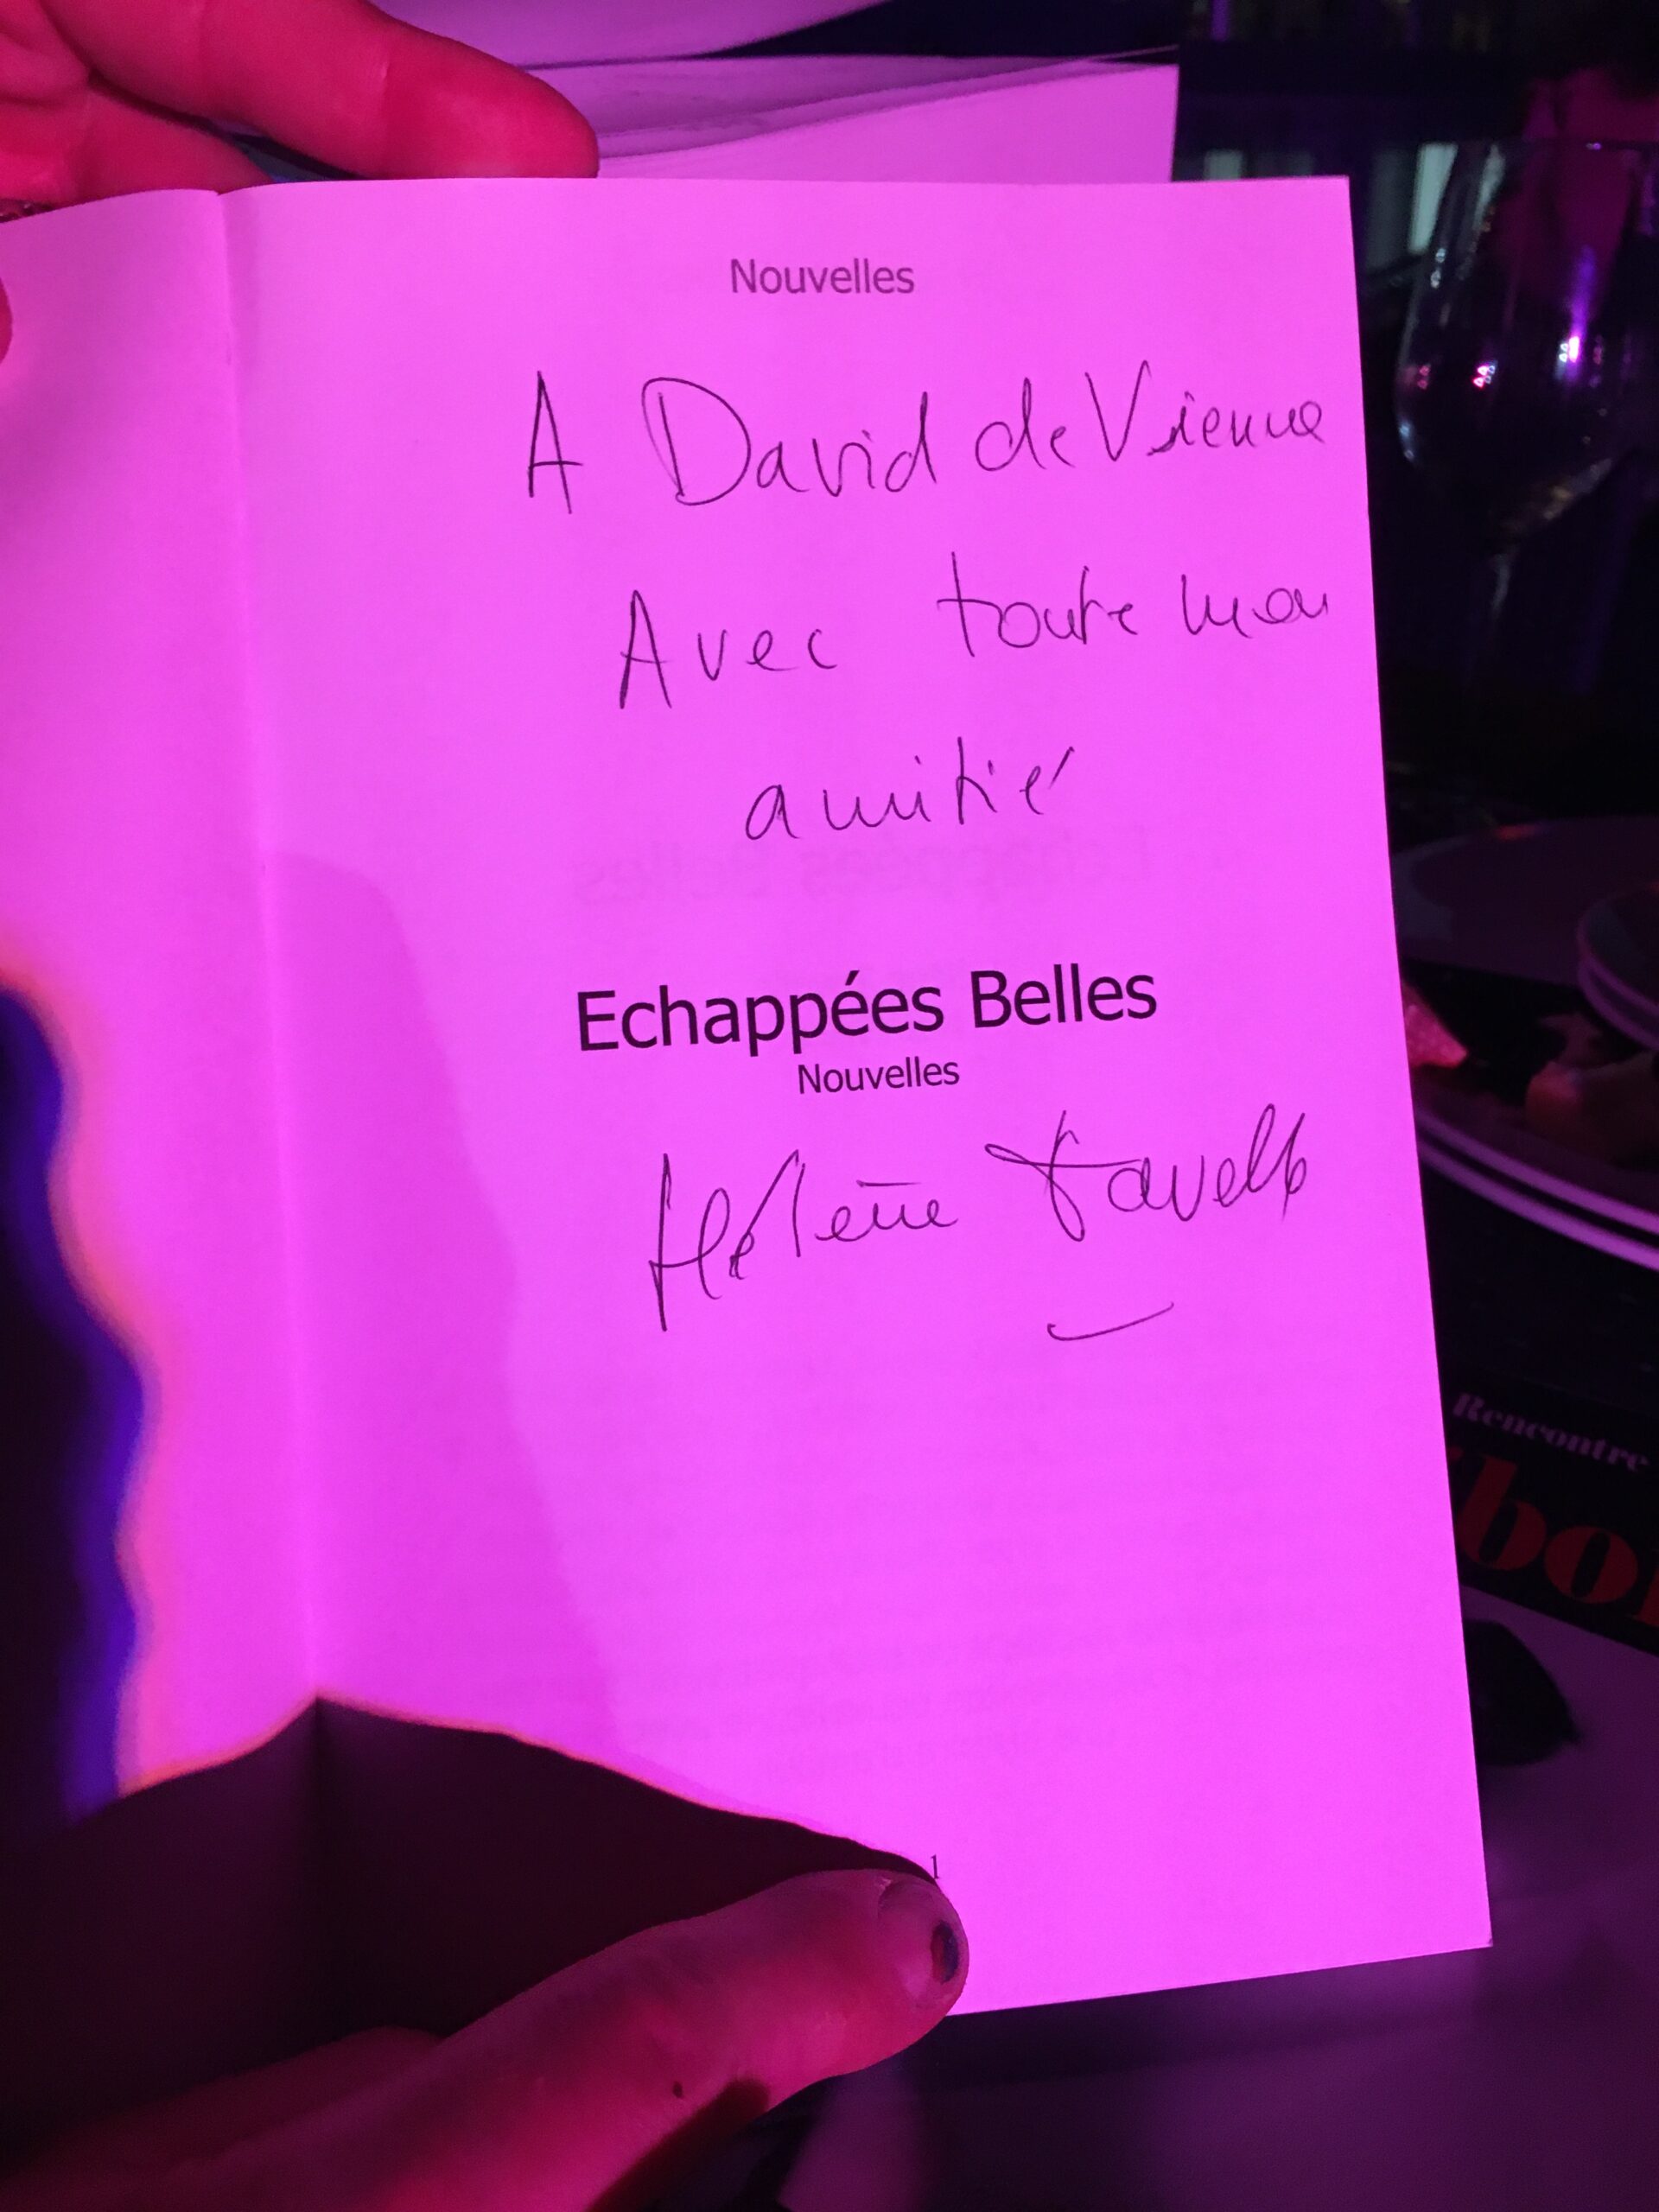 Nouvelles
A David de Vienne
Avec toute mon
amitié
Echappées Belles
Nouvelles
Hélène
1
Rencontre